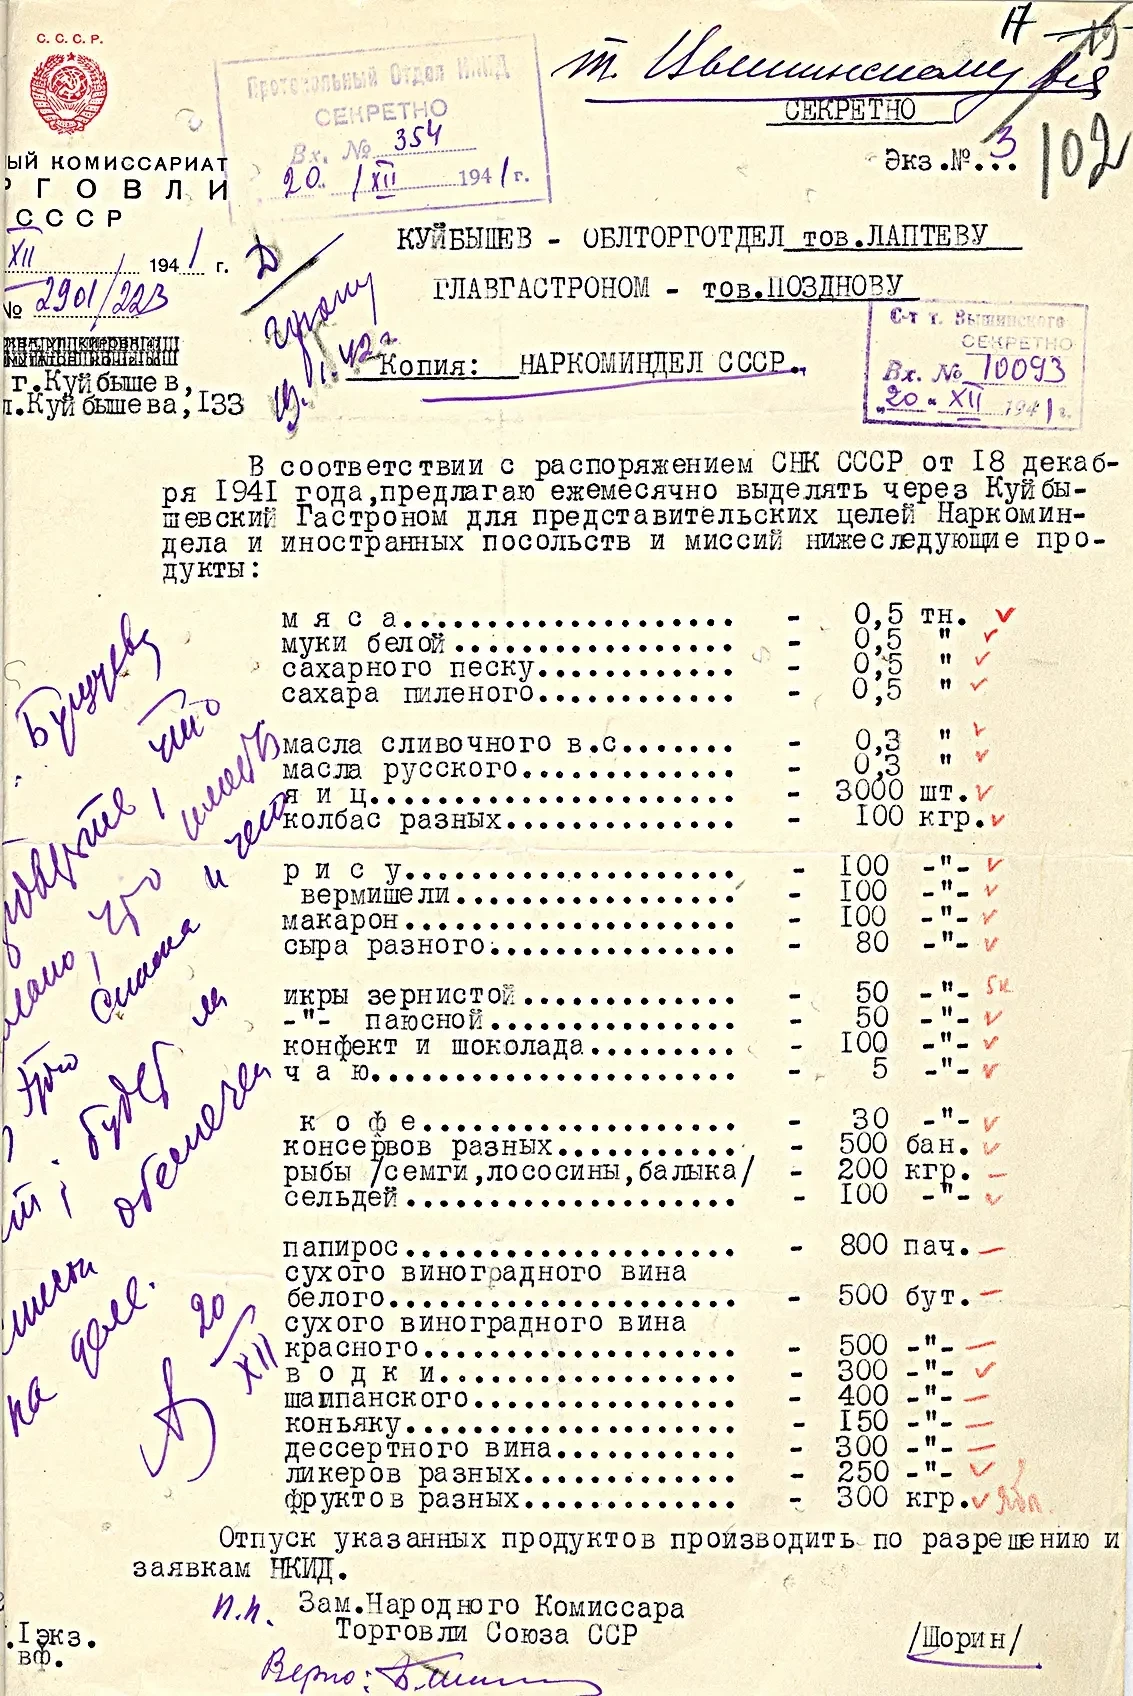 17
С. С. С. Р.
Протокольный Отдел НКИД
СЕКРЕТНО
Вх. № 354
20 / XII 1941 г.
т. Вышинскому
СЕКРЕТНО
Экз.№ 3...
102
ЫЙ КОМИССАРИАТ
РГОВЛИ
СССР
XII 1941 г.
№ 2901/223
г.Куйбышев,
л.Куйбышева,133
КУЙБЫШЕВ - ОБЛТОРГОТДЕЛ тов.ЛАПТЕВУ
ГЛАВГАСТРОНОМ - тов.ПОЗДНОВУ
19.1.42 г
Копия: НАРКОМИНДЕЛ СССР.
С-т т. Вышинского
СЕКРЕТНО
Вх. № 10093
„20" XII 1941 г.
В соответствии с распоряжением СНК СССР от 18 декаб-
ря 1941 года,предлагаю ежемесячно выделять через Куйбы-
шевский Гастроном для представительских целей Наркомин-
дела и иностранных посольств и миссий нижеследующие про-
дукты:
м я с а.................... - 0,5 тн.
муки белой................. - 0,5 "
сахарного песку............ - 0,5 "
сахара пиленого............ - 0,5 "
масла сливочного в.с....... - 0,3 "
масла русского............. - 0,3 "
я и ц...................... - 3000 шт.
колбас разных.............. - 100 кгр.
р и с у.................... - 100 -"-
вермишели................. - 100 -"-
макарон.................... - 100 -"-
сыра разного............... - 80 -"-
икры зернистой............. - 50 -"-
-"- паюсной............... - 50 -"-
конфект и шоколада......... - 100 -"-
ч а ю...................... - 5 -"-
к о ф е................... - 30 -"-
консервов разных........... - 500 бан.
рыбы /семги,лососины,балыка/ - 200 кгр.
сельдей.................... - 100 -"-
папирос.................... - 800 пач.
сухого виноградного вина
белого..................... - 500 бут.
сухого виноградного вина
красного................... - 500 -"-
в о д к и.................. - 300 -"-
шампанского................ - 400 -"-
коньяку.................... - 150 -"-
дессертного вина........... - 300 -"-
ликеров разных............. - 250 -"-
фруктов разных............. - 300 кгр.
что
и
будет ли
обеспечен
на деле.
20
XII
Отпуск указанных продуктов производить по разрешению и
заявкам НКИД.
п.п. Зам.Народного Комиссара
Торговли Союза ССР /Шорин/
.1экз.
вф.
Верно: